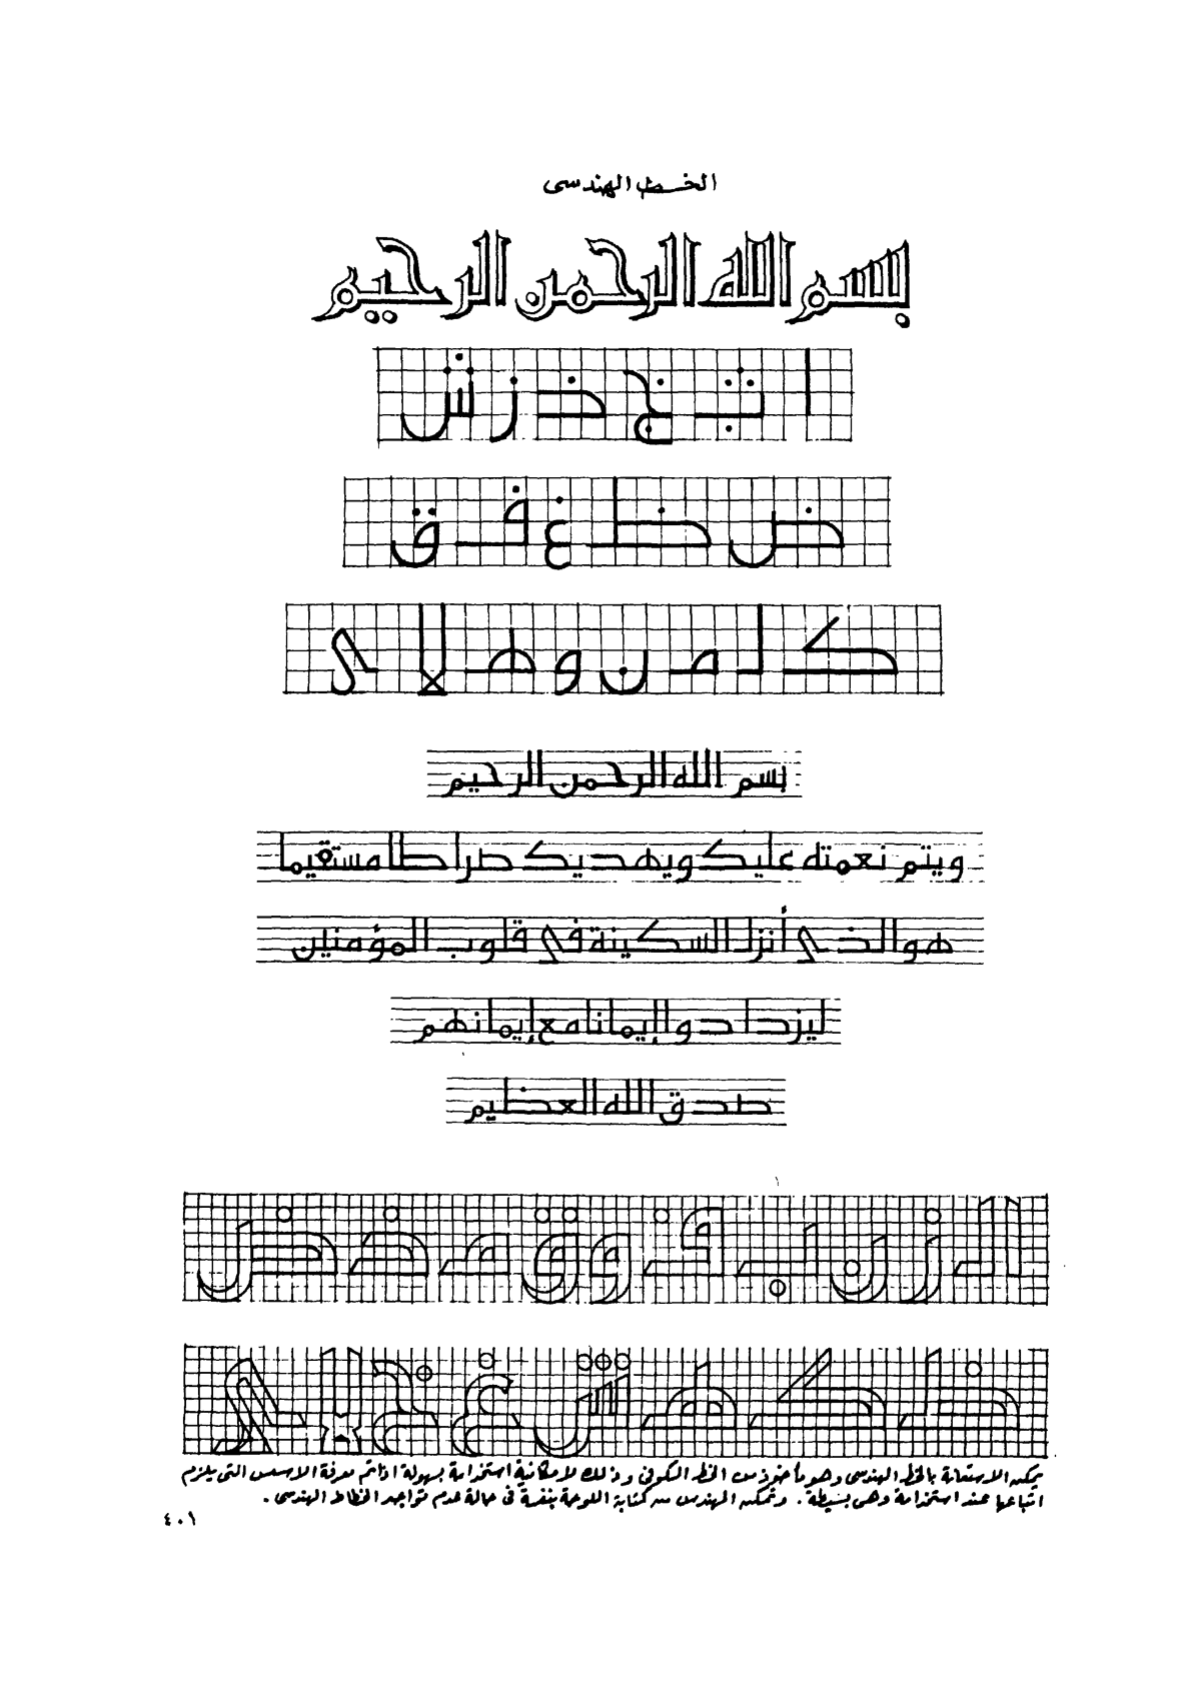 الخط الهندسى
بسم الله الرحمن الرحيم
ا ث خ ذ ز ش
ض ظ غ ف ق
ك ل م ن و ه لا ى
بسم الله الرحمن الرحيم
ويتم نعمته عليك ويهديك صراطا مستقيما
هو الذى أنزل السكينة فى قلوب المؤمنين
ليزدادوا إيمانا مع إيمانهم
صدق الله العظيم
ا ل ز ن ب ف و ق م خ ض
ظ ك ه ش غ خ لا ى
يمكن الاستعانة بالخط الهندسى وهو مأخوذ من الخط الكوفى وذلك لامكانية استخدامه بسهولة اذا تم معرفة الاسس التى يلزم
اتباعها عند استخدامه وهى بسيطة . ويمكن المهندس من كتابة اللوحة بنفسه فى حالة عدم تواجد الخطاط الهندسى .
٤٠١